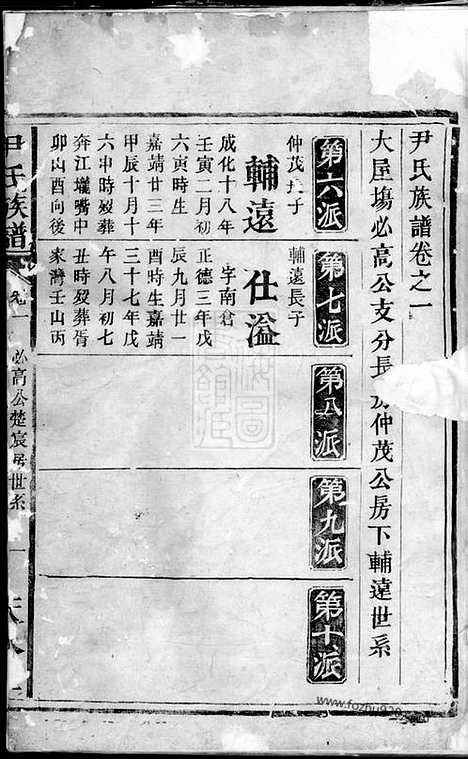 尹氏族譜卷之一
大屋塲必高公支分長房仲茂公房下輔遠世系
第六派
第七派
第八派
第九派
第十派
仲茂長子
輔遠
成化十八年
壬寅二月初
六寅時生
嘉靖廿三年
甲辰十月十
六申時歿葬
奔江壠嘴中
卯山酉向後
輔遠長子
仕溢
字南倉
正德三年戊
辰九月廿一
酉時生嘉靖
三十七年戊
午八月初七
丑時歿葬胥
家灣壬山丙
尹氏族譜
卷一
必高公楚宸房世系
一
www.fozhu920